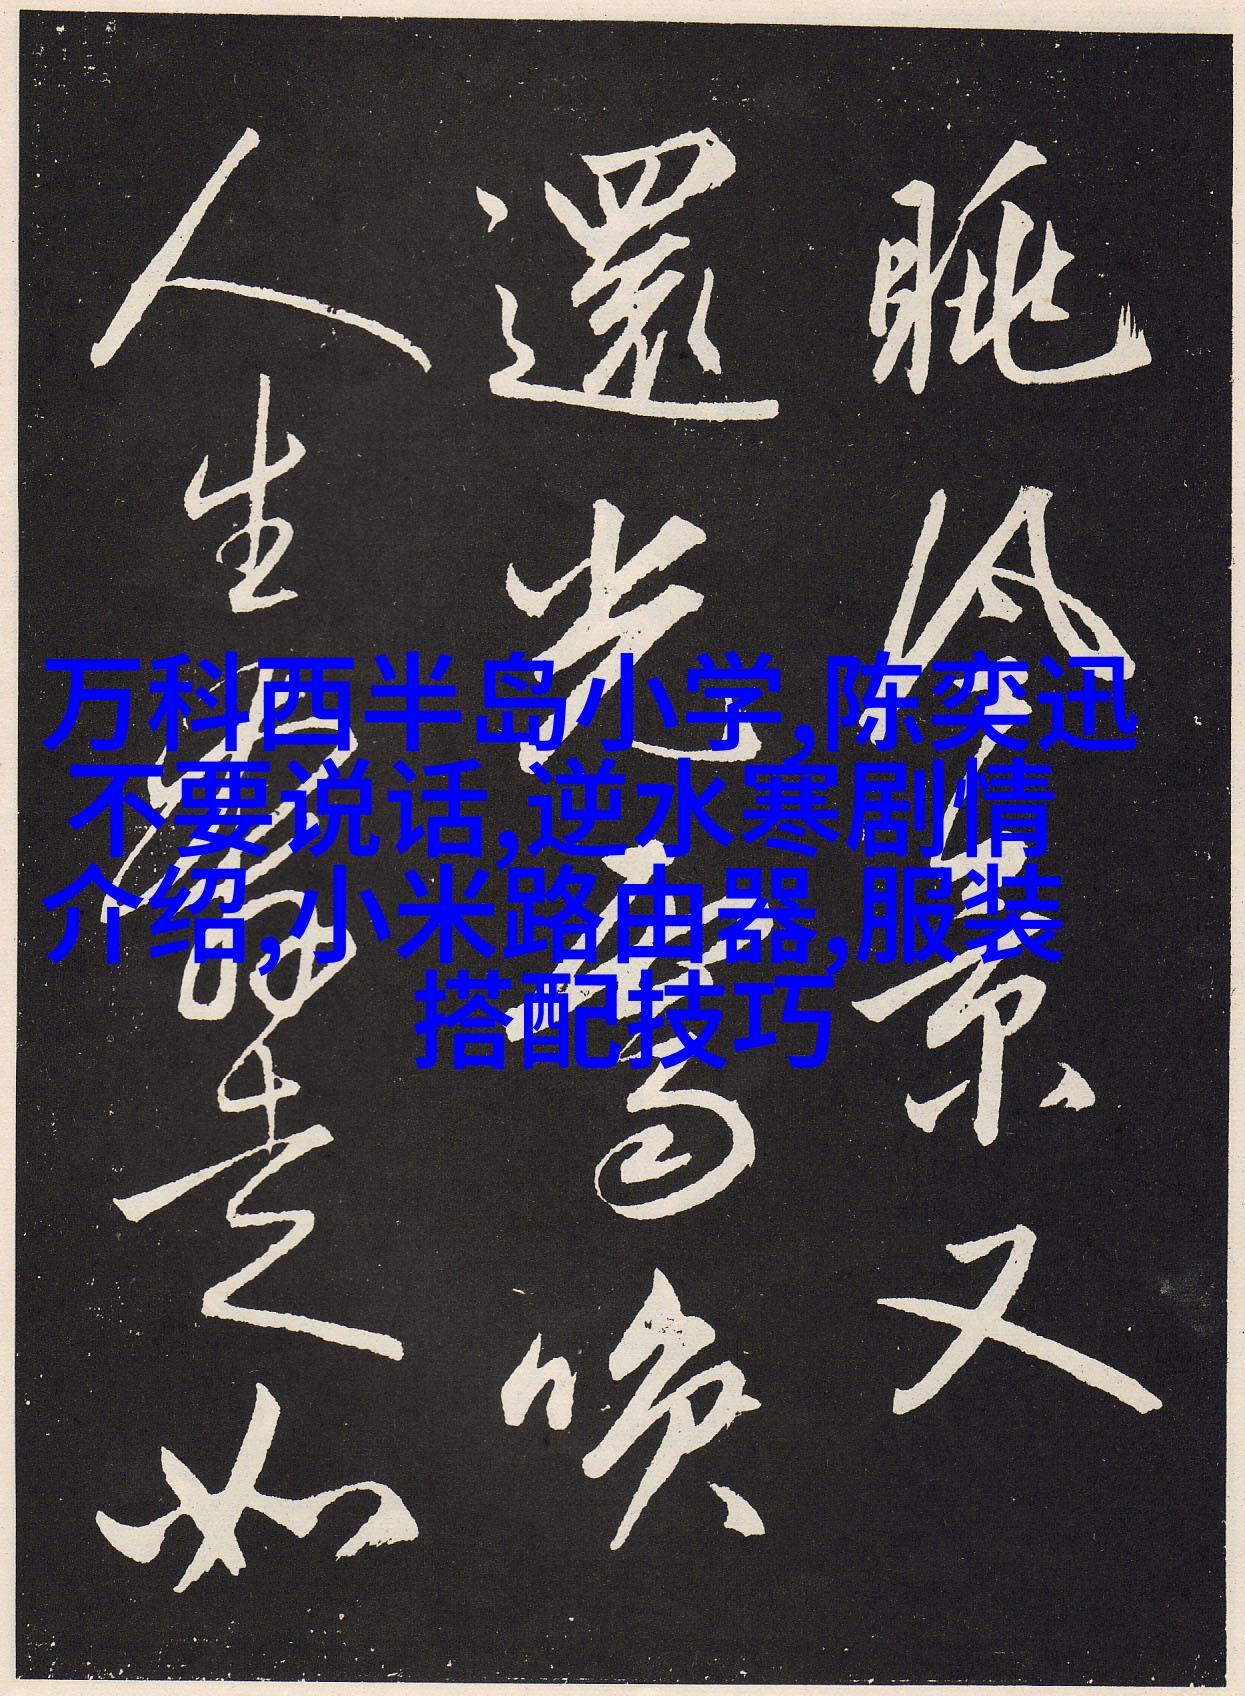 万科西半岛小学,陈奕迅
不要说话,逆水寒剧情
介绍,小米路由器,服装
搭配技巧
眺景又
還光
人生如